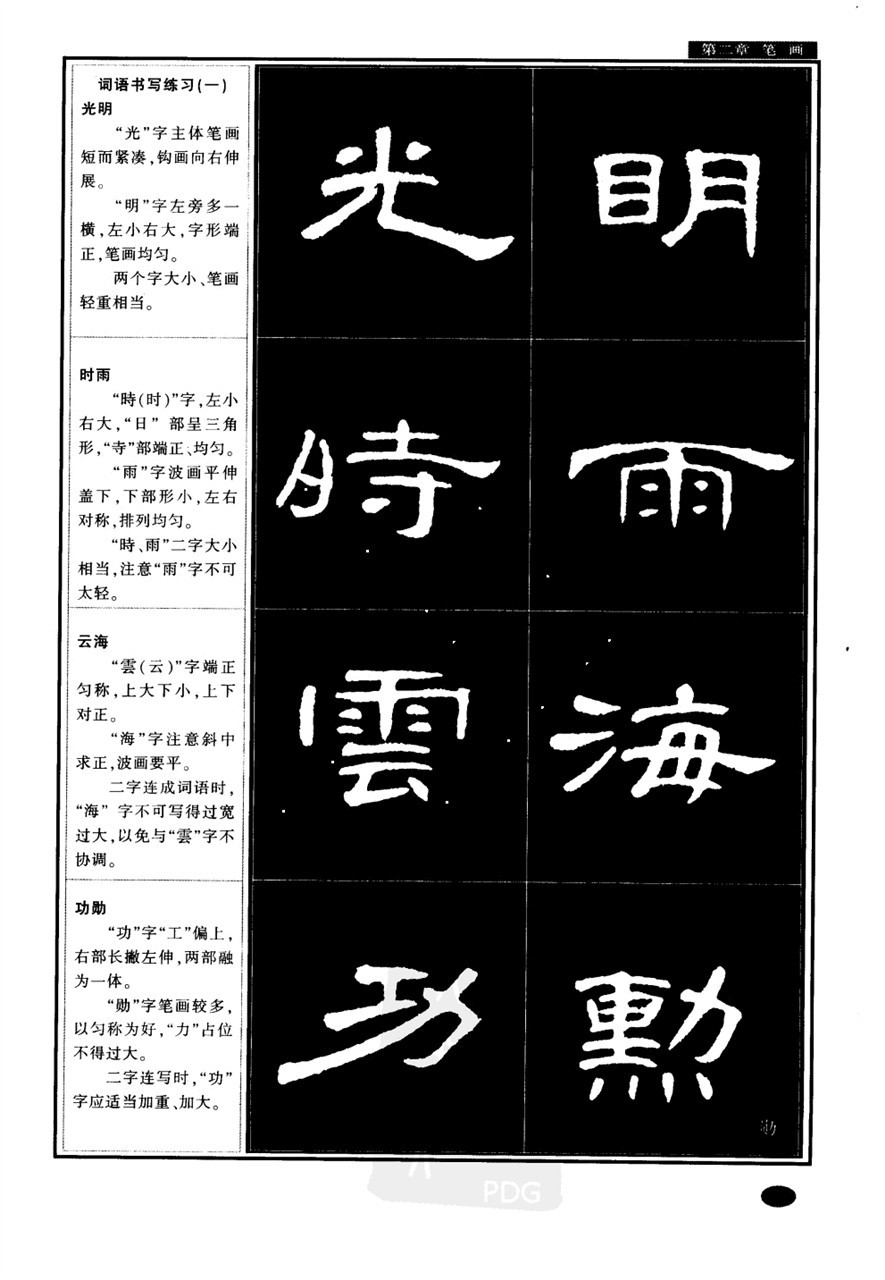 第二章 笔 画
词语书写练习(一)
光明
“光”字主体笔画
短而紧凑,钩画向右伸
展。
“明”字左旁多一
横,左小右大,字形端
正,笔画均匀。
两个字大小、笔画
轻重相当。
光 明
时雨
“時(时)”字,左小
右大,“日”部呈三角
形,“寺”部端正、均匀。
“雨”字波画平伸
盖下,下部形小,左右
对称,排列均匀。
“時、雨”二字大小
相当,注意“雨”字不可
太轻。
時 雨
云海
“雲(云)”字端正
匀称,上大下小,上下
对正。
“海”字注意斜中
求正,波画要平。
二字连成词语时,
“海”字不可写得过宽
过大,以免与“雲”字不
协调。
雲 海
功勋
“功”字“工”偏上,
右部长撇左伸,两部融
为一体。
“勋”字笔画较多,
以匀称为好,“力”占位
不得过大。
二字连写时,“功”
字应适当加重、加大。
功 勳
勋
PDG